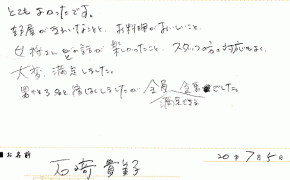 とてもよかったです。
部屋がきれいなこと、お料理がおいしいこと、
女将さんの話が楽しかったこと、スタッフの方の対応もよく、
大変、満足しました。
しましたが 全員 でした
満足できる
■お名前
石崎 貴
20年7月5日